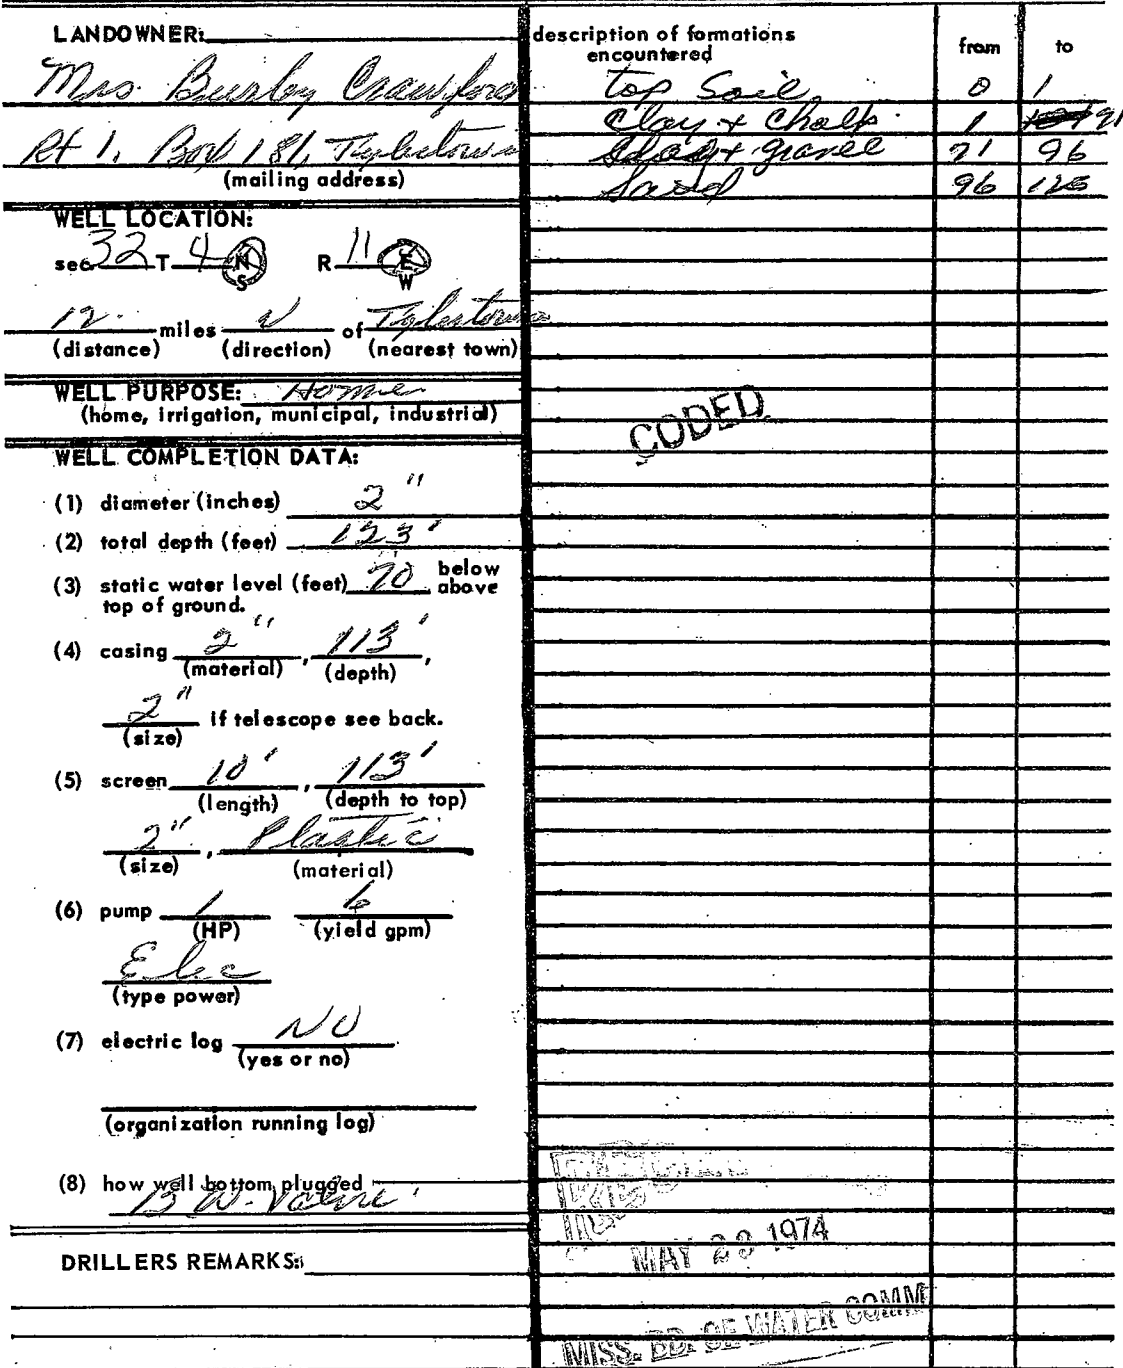 LANDOWNER:
Mrs. Burley Crawford
Rt 1, Box 181, Tylertown
(mailing address)
WELL LOCATION:
sec. 32 T 4 N S R 11 E W
12 miles N of Tylertown
(distance) (direction) (nearest town)
WELL PURPOSE: Home
(home, irrigation, municipal, industrial)
WELL COMPLETION DATA:
(1) diameter (inches) 2"
(2) total depth (feet) 123'
(3) static water level (feet) 70 below above
top of ground.
(4) casing 2", 113',
(material) (depth)
2" if telescope see back.
(size)
(5) screen 10', 113'
(length) (depth to top)
2", Plastic
(size) (material)
(6) pump 1 6
(HP) (yield gpm)
Elec
(type power)
(7) electric log NO
(yes or no)
(organization running log)
(8) how well bottom plugged
B W. Valve
DRILLERS REMARKS:
description of formations
encountered from to
top Soil 0 1
Clay + Chalk 1 91
& gravel 91 96
Sand 96 123
CODED
MAY 23 1974
MISS. BD. OF WATER COMM